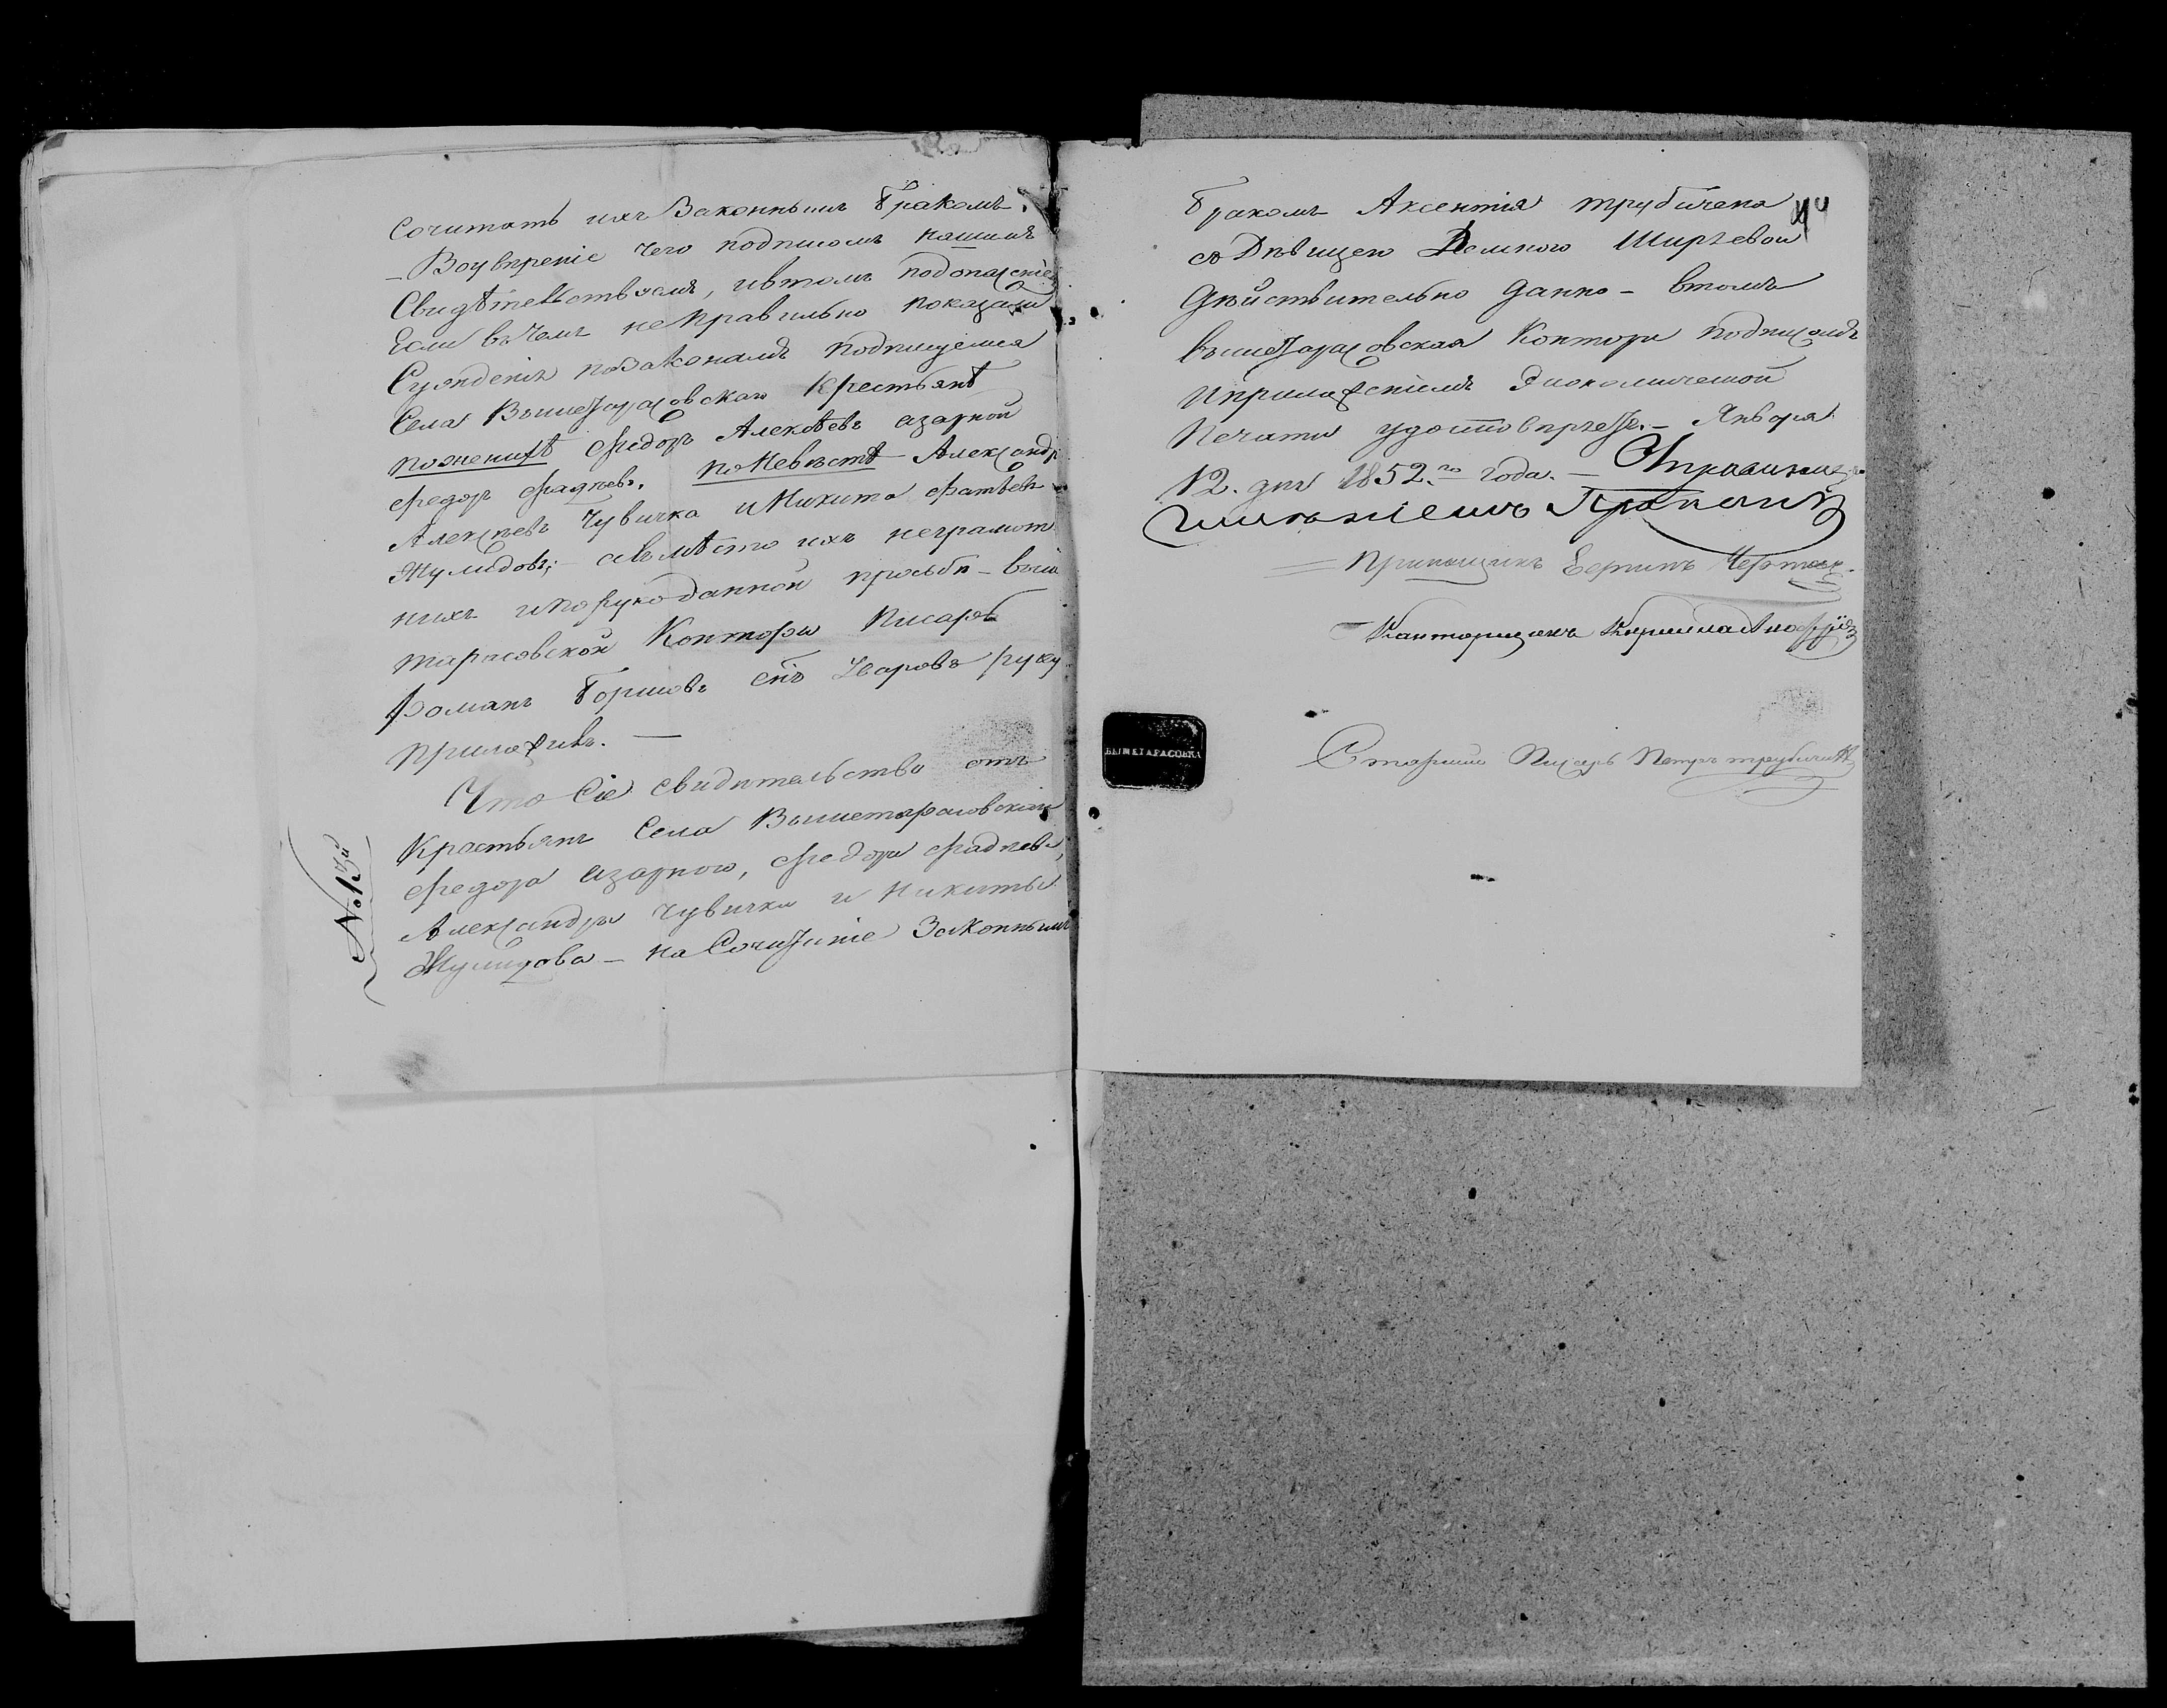 Сочитать ихъ Законнымъ Бракомъ.
– Воувѣреніе чего подписомъ нашимъ
Свидѣтельствуемъ, ивтомъ подопасеніемъ
Если вчемъ неправильно показали
Сужденію позаконамъ подлищемся
Села Вышетарасовскаго Крестьянѣ
поженихѣ Федоръ Алексѣевъ азарной
Федоръ Фадѣевъ. поНевѣстѣ Александръ
Алексѣевъ Чувичка иНикита Фатѣевъ
Жулидовъ; авмѣсто ихъ неграмот
ныхъ ипорукоданной прозьбѣ – выше
тарасовской Конторы писарь
Романъ Боршовъ снъ Уваровъ руку
приложивъ. —
Что Сіе свидѣтельство отъ
Крестьянъ Села Вышетарасовскаго
Федора азарного, Федора Фадѣева,
Александра Чувички и Никиты
Жулидова – на Сочитаніе Законнымъ
No. 13й
44
Бракомъ Аксентія трубичена
съ Дѣвицею Ширяевой
дѣйствительно данно – втомъ
вышетарасовская Контора подписомъ
иприложеніемъ Экономической
печати удостовѣряетъ. – Января
12. дня 1852.го года. –
Прикащикъ
Канторщикъ
Старший Писарь Петръ трубичинъ
ВЫШЕТАРАСОВКА